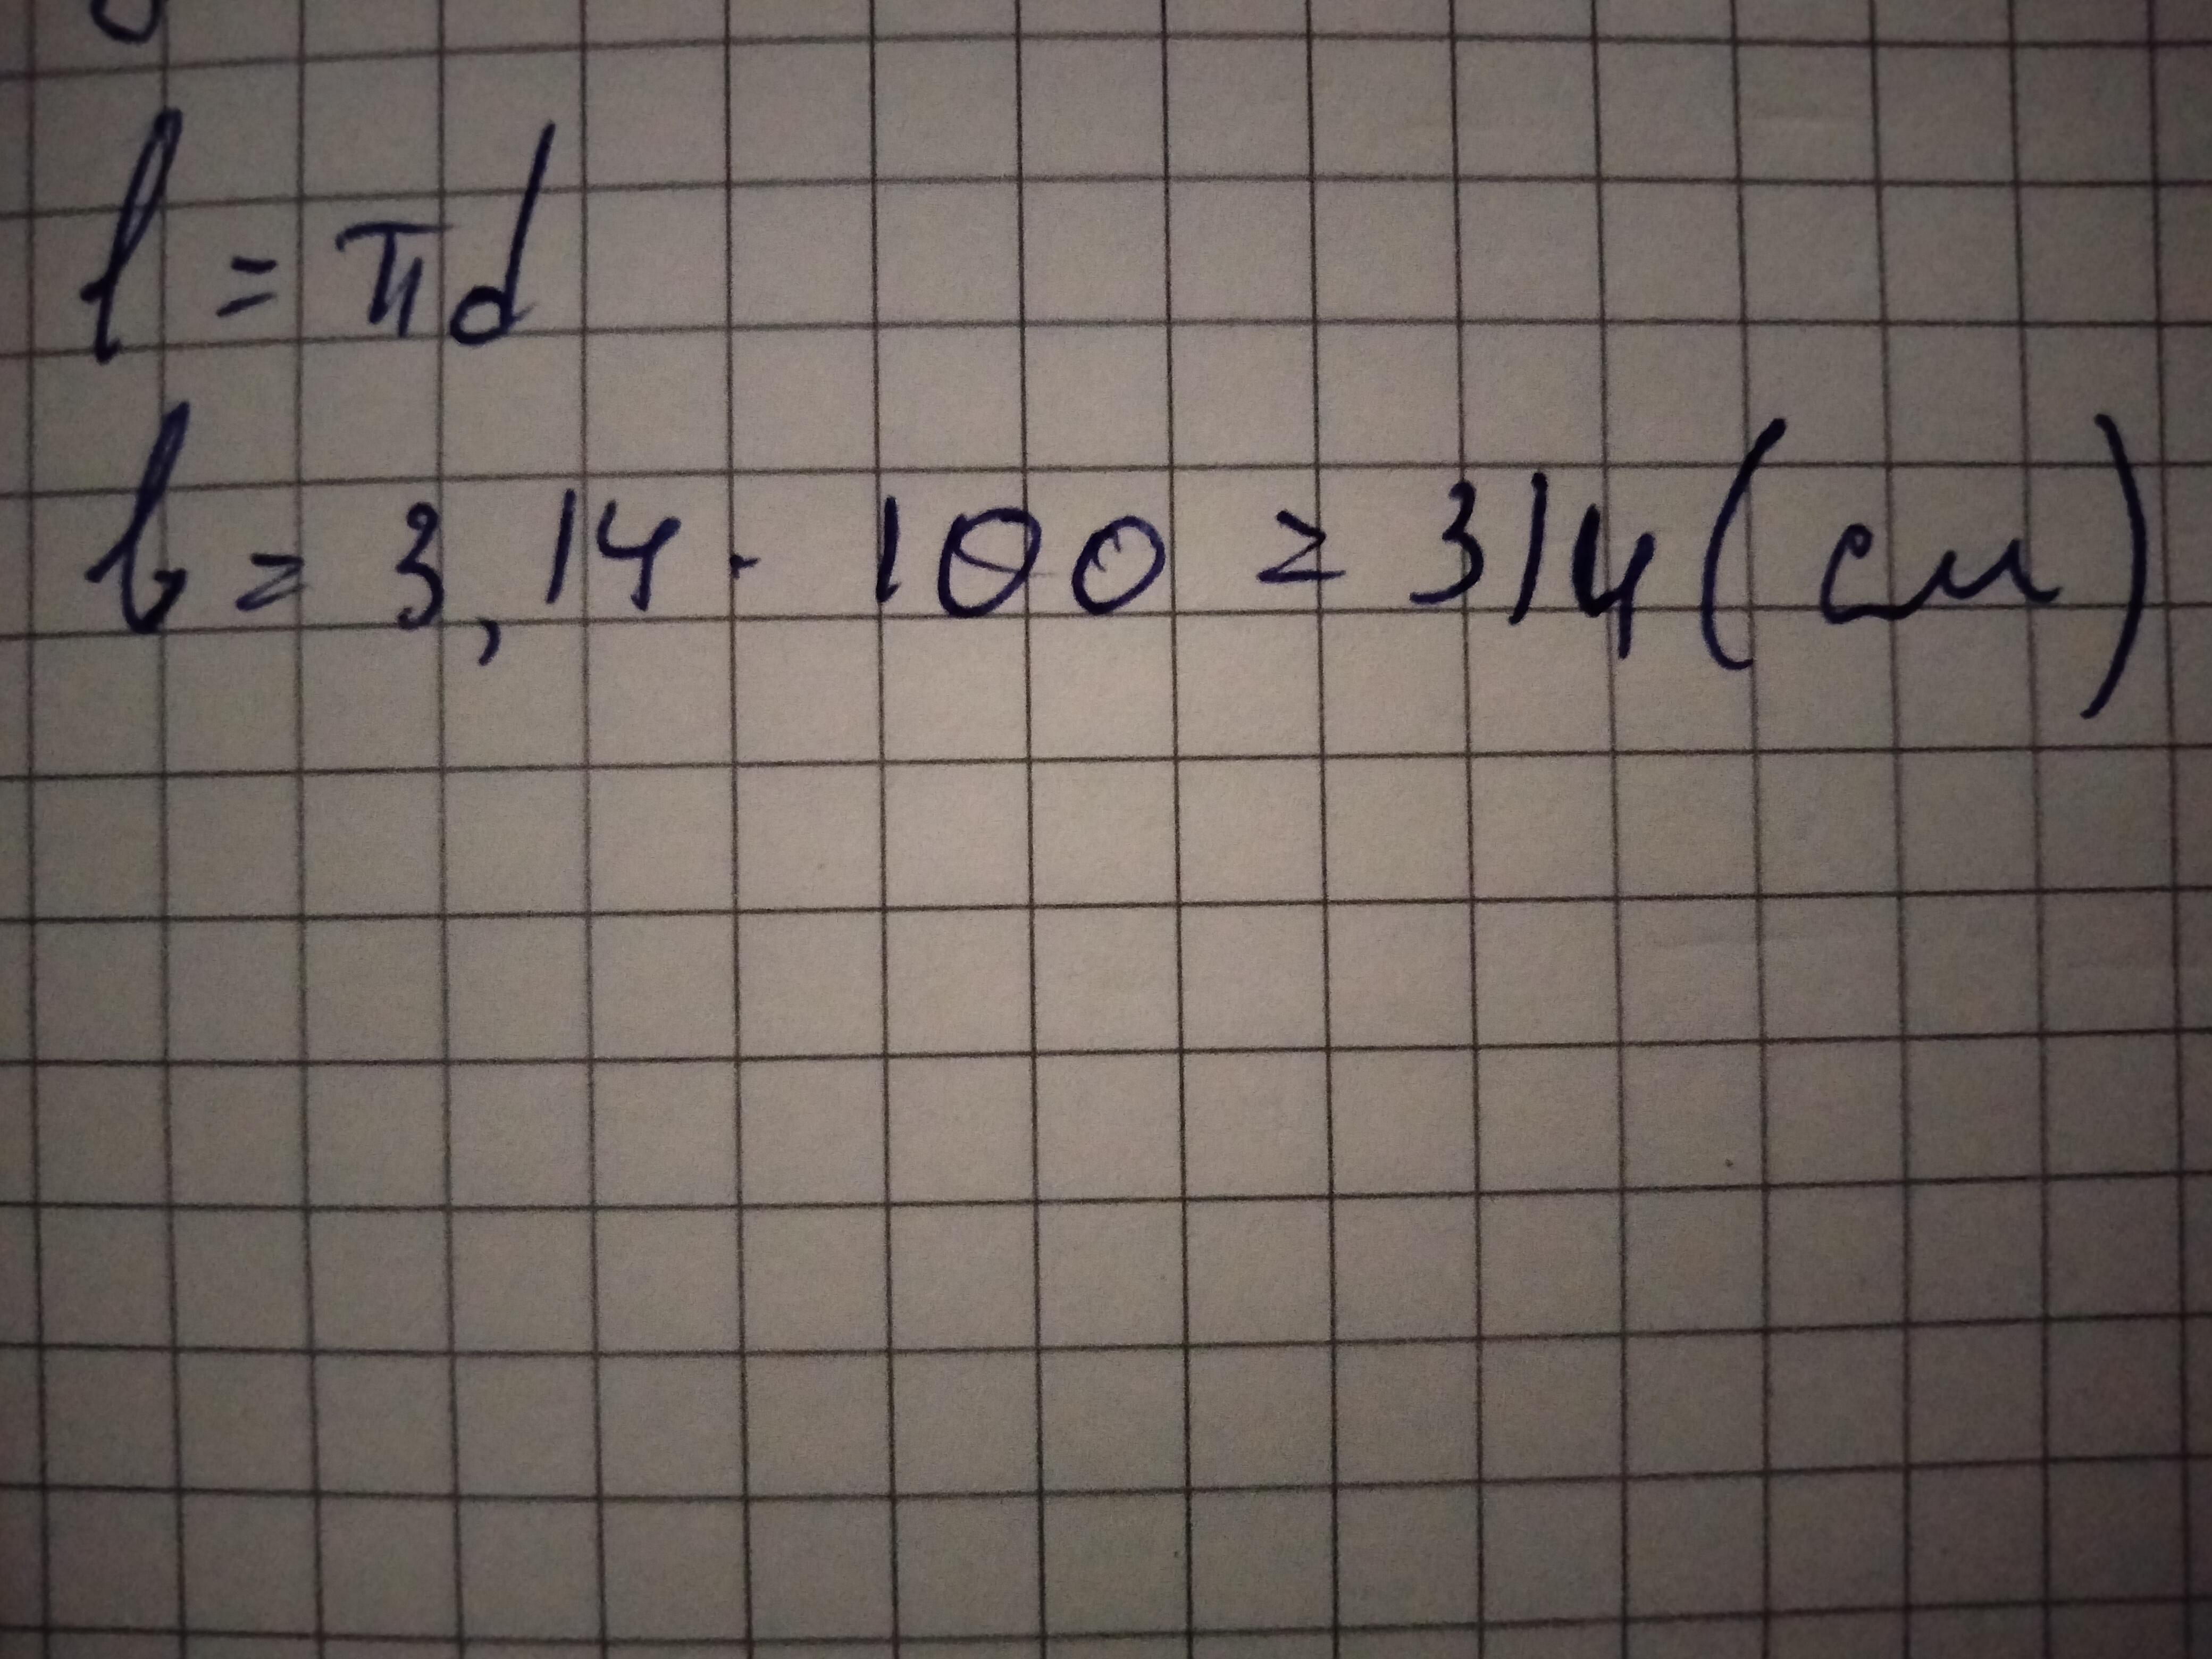 l = πd
l = 3,14 · 100 = 314 (см)